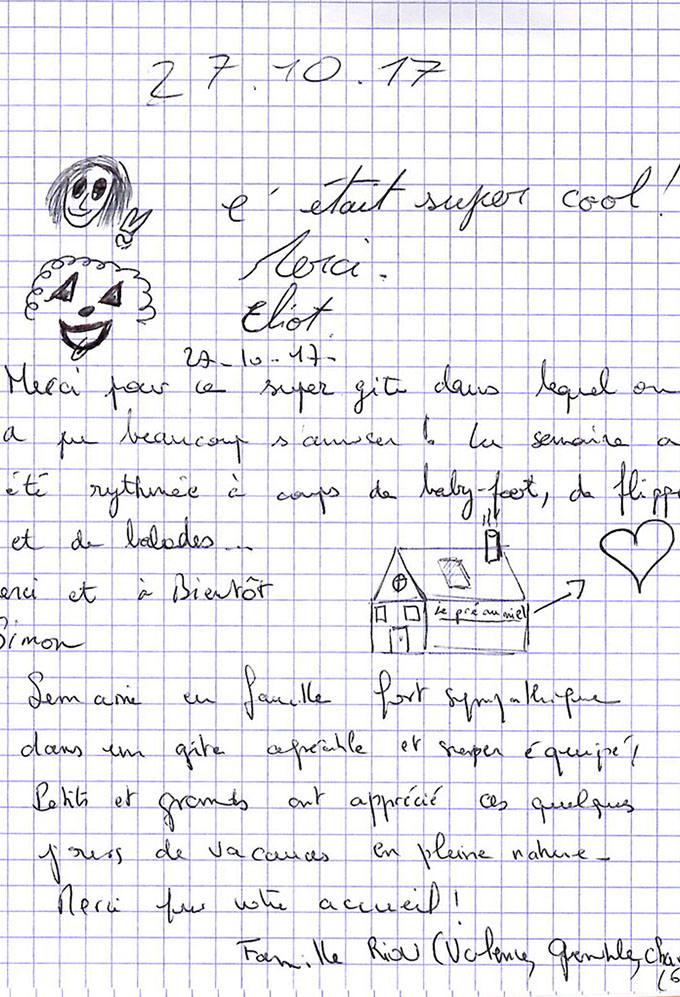 27.10.17
c'était super cool!
Merci.
Eliot
27-10-17-
Merci pour ce super gite dans lequel on
a pu beaucoup s'amuser! La semaine a
été rythmée à coups de baby-foot, de flippe
et de balades...
erci et à Bientôt
Le pré au miel
Simon
Semaine en famille fort sympathique
dans un gite agréable et super équipé!
Petits et grands ont apprécié ces quelques
jours de vacances en pleine nature-
Merci pour votre accueil!
Famille Riou (Valence, Grenoble, cha